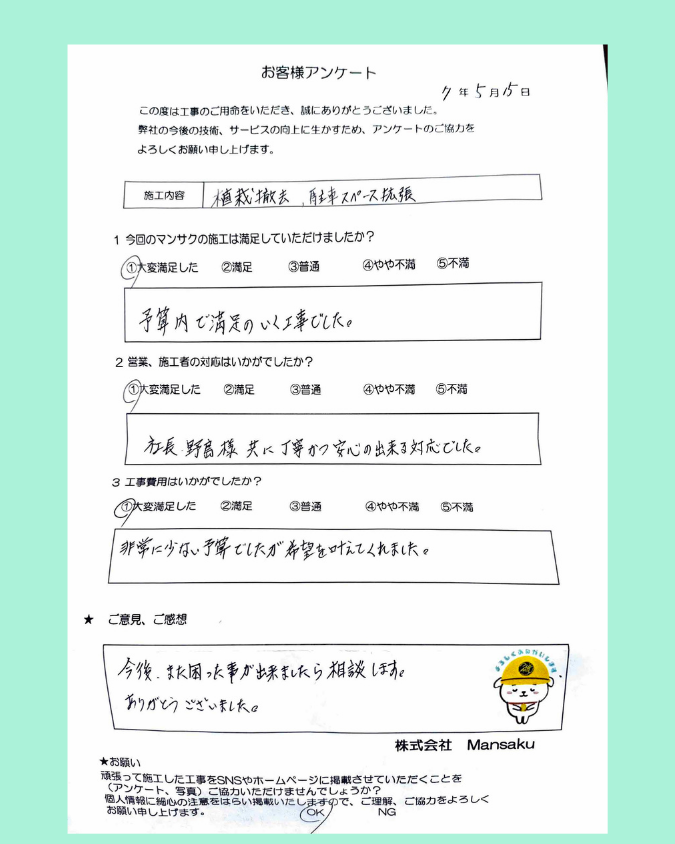 お客様アンケート
7年5月15日
この度は工事のご用命をいただき、誠にありがとうございました。
弊社の今後の技術、サービスの向上に生かすため、アンケートのご協力を
よろしくお願い申し上げます。
施工内容 植栽撤去、駐車スペース拡張
1 今回のマンサクの施工は満足していただけましたか？
①大変満足した ②満足 ③普通 ④やや不満 ⑤不満
予算内で満足のいく工事でした。
2 営業、施工者の対応はいかがでしたか？
①大変満足した ②満足 ③普通 ④やや不満 ⑤不満
社長、野島様 共に丁寧かつ安心の出来る対応でした。
3 工事費用はいかがでしたか？
①大変満足した ②満足 ③普通 ④やや不満 ⑤不満
非常に少ない予算でしたが希望を叶えてくれました。
★ ご意見、ご感想
今後、また困った事が出来ましたら相談します。
ありがとうございました。
よろしくおねがいします
株式会社 Mansaku
★お願い
頑張って施工した工事をSNSやホームページに掲載させていただくことを
（アンケート、写真）ご協力いただけませんでしょうか？
個人情報に細心の注意をはらい掲載いたしますので、ご理解、ご協力をよろしく
お願い申し上げます。 OK NG